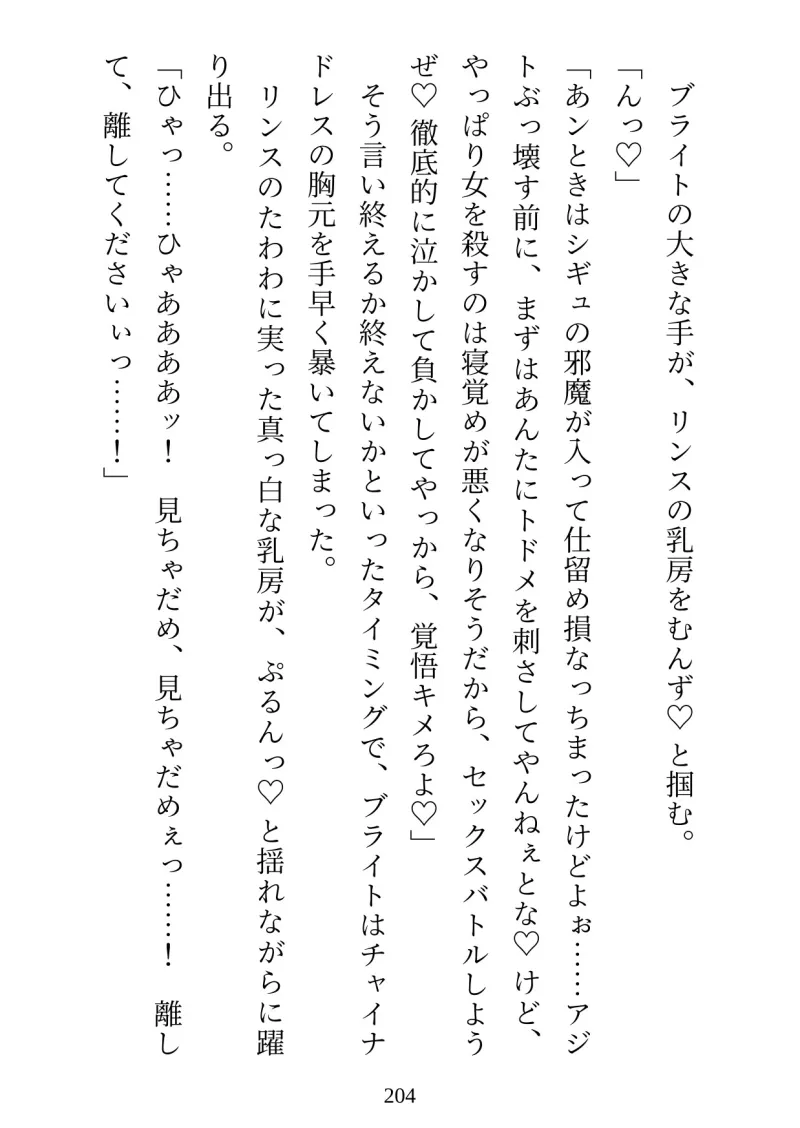 ブライトの大きな手が、リンスの乳房をむんず♡と掴む。
「んっ♡」
「あンときはシギュの邪魔が入って仕留め損なっちまったけどよぉ……アジ
トぶっ壊す前に、まずはあんたにトドメを刺さしてやんねぇとな♡けど、
やっぱり女を殺すのは寝覚めが悪くなりそうだから、セックスバトルしよう
ぜ♡徹底的に泣かして負かしてやっから、覚悟キメろよ♡」
そう言い終えるか終えないかといったタイミングで、ブライトはチャイナ
ドレスの胸元を手早く暴いてしまった。
リンスのたわわに実った真っ白な乳房が、ぷるんっ♡と揺れながらに躍
り出る。
「ひゃっ……ひゃああああッ！　見ちゃだめ、見ちゃだめぇっ……！　離し
て、離してくださいぃっ……！」
204